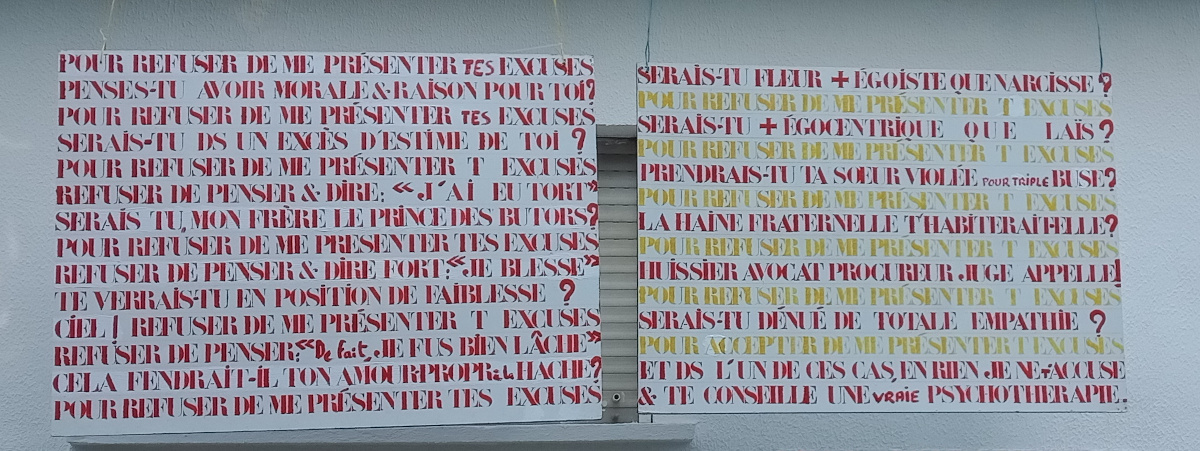 POUR REFUSER DE ME PRÉSENTER TES EXCUSES
PENSES-TU AVOIR MORALE & RAISON POUR TOI?
POUR REFUSER DE ME PRÉSENTER TES EXCUSES
SERAIS-TU DS UN EXCÈS D'ESTIME DE TOI ?
POUR REFUSER DE ME PRÉSENTER T EXCUSES
REFUSER DE PENSER & DIRE: «J'AI EU TORT»
SERAIS TU, MON FRÈRE LE PRINCE DES BUTORS?
POUR REFUSER DE ME PRESENTER TES EXCUSES
REFUSER DE PENSER & DIRE FORT: «JE BLESSE»
TE VERRAIS-TU EN POSITION DE FAIBLESSE ?
CIEL! REFUSER DE ME PRÉSENTER T EXCUSES
REFUSER DE PENSER: «De fait, JE FUS BIEN LÂCHE»
CELA FENDRAIT-IL TON AMOUR-PROPR à la HACHE?
POUR REFUSER DE ME PRÉSENTER TES EXCUSES
SERAIS-TU FLEUR + ÉGOÏSTE QUE NARCISSE ?
POUR REFUSER DE ME PRÉSENTER T EXCUSES
SERAIS-TU + ÉGOCENTRIQUE QUE LAÏS ?
POUR REFUSER DE ME PRÉSENTER T EXCUSES
PRENDRAIS-TU TA SOEUR VIOLÉE POUR TRIPLE BUSE?
POUR REFUSER DE ME PRÉSENTER T EXCUSES
LA HAINE FRATERNELLE T'HABITERAIT-ELLE?
POUR REFUSER DE ME PRÉSENTER T EXCUSES
HUISSIER AVOCAT PROCUREUR JUGE APPELLE!
POUR REFUSER DE ME PRÉSENTER T EXCUSES
SERAIS-TU DÉNUÉ DE TOTALE EMPATHIE ?
POUR ACCEPTER DE ME PRÉSENTER T EXCUSES
ET DS L'UN DE CES CAS, EN RIEN JE NE T'ACCUSE
& TE CONSEILLE UNE VRAIE PSYCHOTHERAPIE.